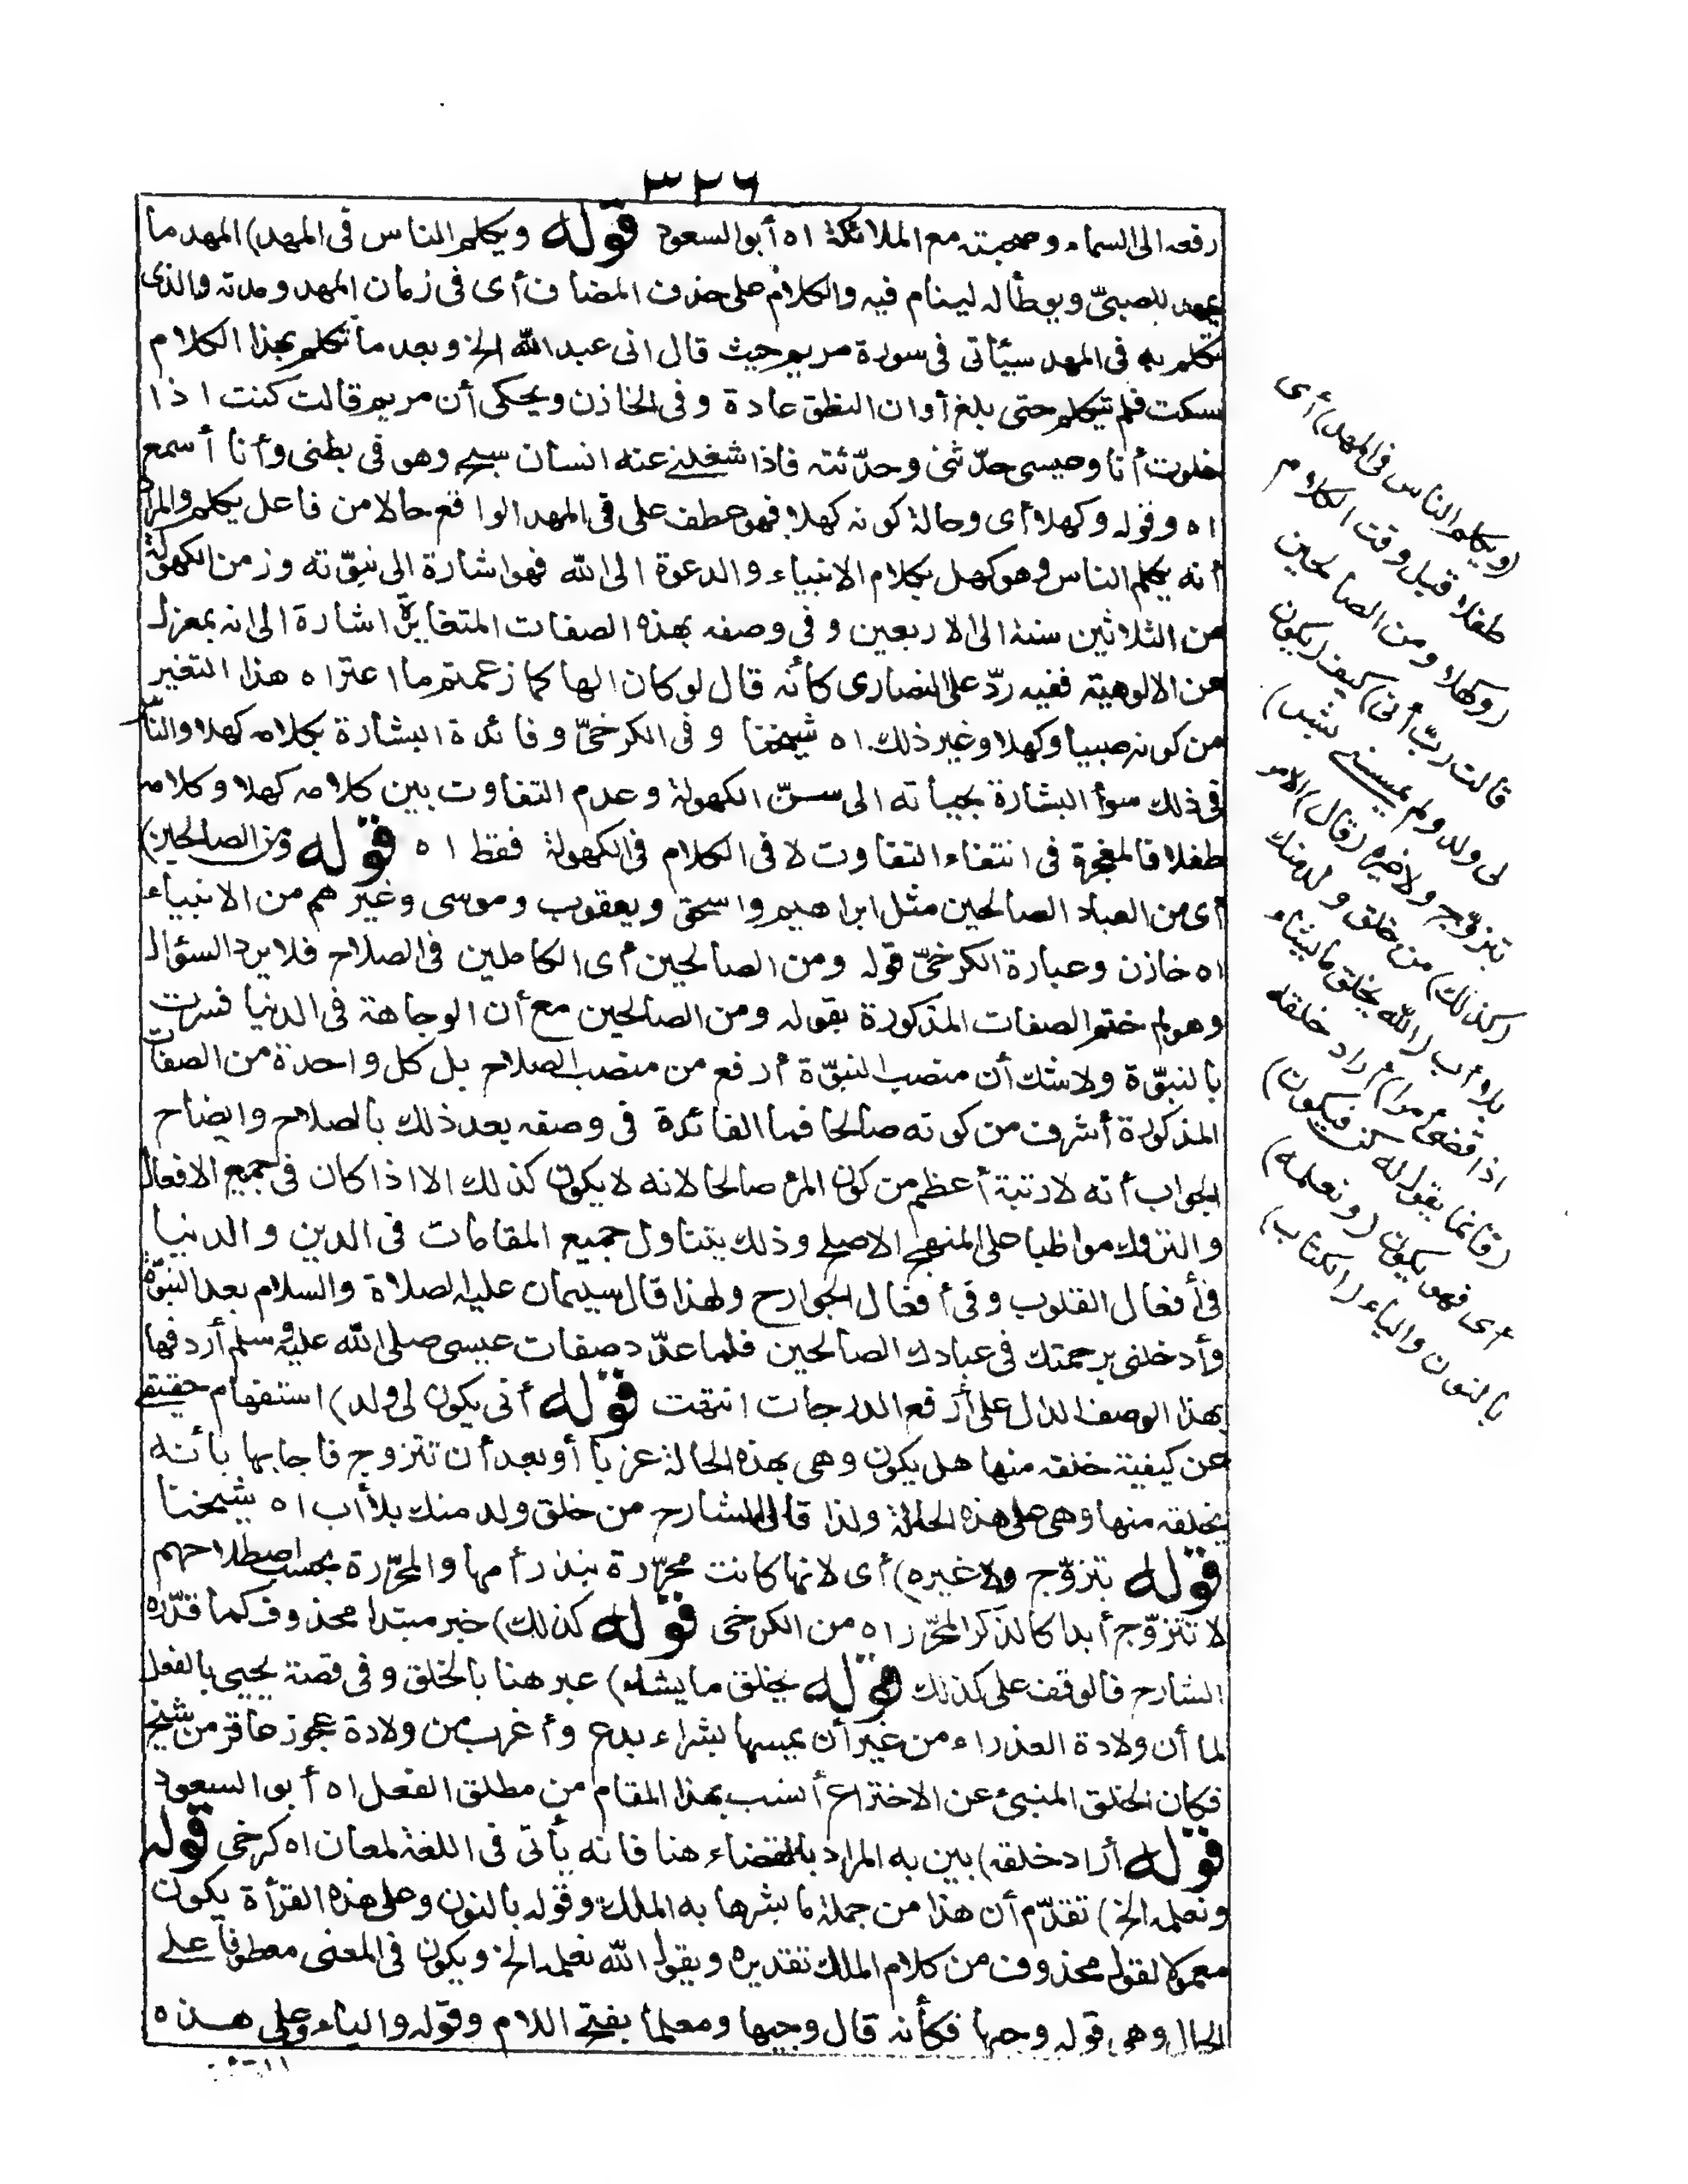 ٣٢٦
رفعه الى السماء وصحبته مع الملائكة اه أبوالسعود قوله ويكلم الناس فى المهد) المهد ما
يمهد للصبىّ ويوطأ له لينام فيه والكلام على حذف المضاف أى فى زمان المهد ومدته والذى
تكلم به فى المهد سيأتى فى سورة مريم حيث قال انى عبد الله الخ وبعد ما تكلم بهذا الكلام
سكت فلم يتكلم حتى بلغ أوان النطق عادة وفى الخازن ويحكى أن مريم قالت كنت اذا
خلوت أنا وعيسى حدّثنى وحدّثته فاذا شغلنى عنه انسان سبح وهو فى بطنى وأنا أسمع
اه وقوله وكهلا أى وحالة كونه كهلا فهو عطف على فى المهد الواقع حالا من فاعل يكلم والمراد
أنه يكلم الناس وهو كهل بكلام الانبياء والدعوة الى الله فهو اشارة الى نبوّته وزمن الكهولة
من الثلاثين سنة الى الاربعين وفى وصفه بهذه الصفات المتغايرة اشارة الى انه بمعزل
عن الالوهية ففيه ردّ على النصارى كأنه قال لو كان الها كما زعمتم ما اعتراه هذا التغير
من كونه صبيا وكهلا وغير ذلك اه شيخنا وفى الكرخىّ وفائدة البشارة بكلامه كهلا والناس
فى ذلك سوأ البشارة بحياته الى سنّ الكهولة وعدم التفاوت بين كلامه كهلا وكلامه
طفلا فالمعجزة فى انتفاء التفاوت لا فى الكلام فى الكهولة فقط اه قوله ومن الصالحين)
أى من العباد الصالحين مثل ابراهيم واسحق ويعقوب وموسى وغيرهم من الانبياء
اه خازن وعبارة الكرخىّ قوله ومن الصالحين أى الكاملين فى الصلاح فلا يرد السؤال
وهو لم ختم الصفات المذكورة بقوله ومن الصالحين مع أن الوجاهة فى الدنيا فسرت
بالنبوّة ولا شك أن منصب النبوّة أرفع من منصب الصلاح بل كل واحدة من الصفات
المذكورة أشرف من كونه صالحا فما الفائدة فى وصفه بعد ذلك بالصلاح وايضاح
الجواب أنه لا رتبة أعظم من كون المرء صالحا لانه لا يكون كذلك الا اذا كان فى جميع الافعال
والتروك مواظبا على المنهج الاصلح وذلك يتناول جميع المقامات فى الدين والدنيا
فى أفعال القلوب وفى أفعال الجوارح ولهذا قال سليمان عليه الصلاة والسلام بعد النبوّة
وأدخلنى برحمتك فى عبادك الصالحين فلما عدّد صفات عيسى صلى الله عليه وسلم أردفها
بهذا الوصف الدال على أرفع الدرجات انتهت قوله أنى يكون لى ولد) استفهام حقيقى
عن كيفية خلقه منها هل يكون وهى بهذه الحالة عزبا أو بعد أن تتزوج فاجابها بأنه
يخلقه منها وهى على هذه الحالة ولذا قال الشارح من خلق ولد منك بلا أب اه شيخنا
قوله بتزوّج ولا غيره) أى لانها كانت محرّرة بنذر أمها والمحرّرة بحسب اصطلاحهم
لا تتزوّج أبدا كالذكر المحرّر اه من الكرخى قوله كذلك) خبر مبتدا محذوف كما قدّره
الشارح فالوقف على كذلك قوله يخلق ما يشاء) عبر هنا بالخلق وفى قصة يحيى بالفعل
لما أن ولادة العذراء من غير أن يمسها بشراء بدع وأغرب من ولادة عجوز عاقر من شيخ
فكان الخلق المنبئ عن الاختراع أنسب بهذا المقام من مطلق الفعل اه أبو السعود
قوله أراد خلقه) بين به المراد بالقضاء هنا فانه يأتى فى اللغة لمعان اه كرخى قوله
ونعلمه الخ) تقدّم أن هذا من جملة ما بشرها به الملك وقوله بالنون وعلى هذه القرأة يكون
معمولا لقول محذوف من كلام الملك تقديره ويقول الله نعلمه الخ ويكون فى المعنى معطوفا على
الحال وهى قوله وجيها فكأنه قال وجيها ومعلما بفتح اللام وقوله والياء وعلى هذه
(ويكلم الناس فى المهد) أى
طفلا قبل وقت الكلام
(وكهلا ومن الصالحين
قالت ربّ أنى) كيف (يكون
لى ولد ولم يمسسنى بشر)
بتزوّج ولا غيره (قال) الامر
(كذلك) من خلق ولد منك
بلا أب (الله يخلق ما يشاء
اذا قضى أمرا) أراد خلقه
(فانما يقول له كن فيكون)
أى فهو يكون (ونعلمه)
بالنون والياء (الكتاب)